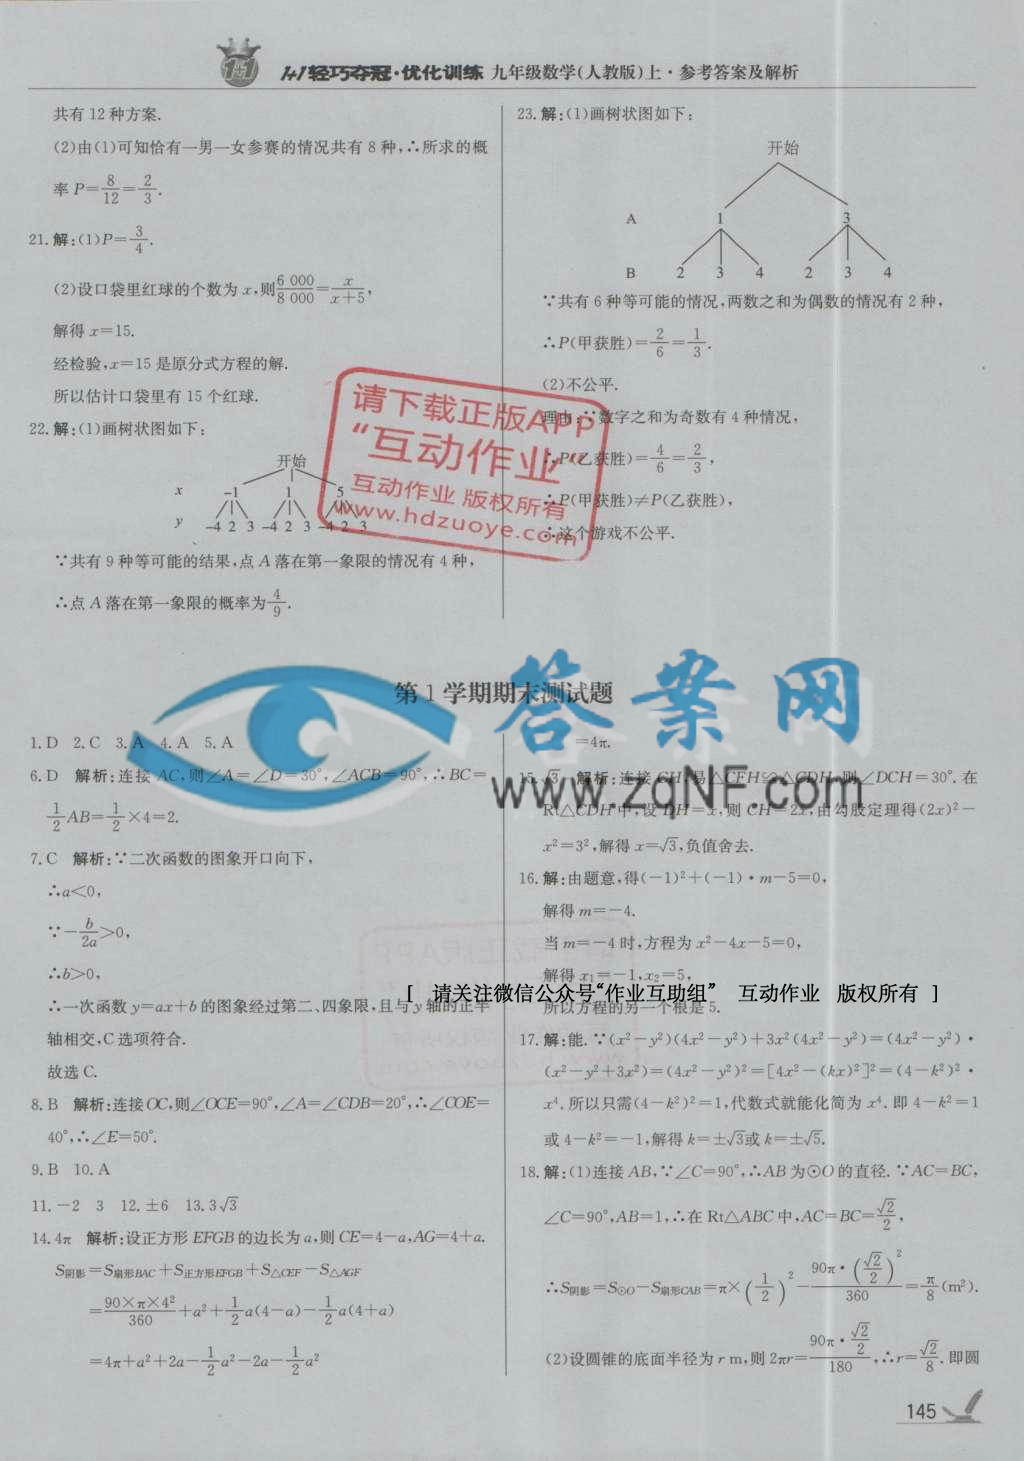 1+1轻巧夺冠·优化训练 九年级数学(人教版)上·参考答案及解析
共有12种方案.
(2)由(1)可知恰有一男一女参赛的情况共有8种,∴所求的概
率P=8/12=2/3.
21.解:(1)P=3/4.
(2)设口袋里红球的个数为x,则6 000/8 000=x/(x+5),
解得x=15.
经检验,x=15是原分式方程的解.
所以估计口袋里有15个红球.
22.解:(1)画树状图如下:
开始
x -1 1 5
y -4 2 3 -4 2 3 -4 2 3
∵共有9种等可能的结果,点A落在第一象限的情况有4种,
∴点A落在第一象限的概率为4/9.
23.解:(1)画树状图如下:
开始
A 1 3
B 2 3 4 2 3 4
∵共有6种等可能的情况,两数之和为偶数的情况有2种,
∴P(甲获胜)=2/6=1/3.
(2)不公平.
理由:∵数字之和为奇数有4种情况,
∴P(乙获胜)=4/6=2/3,
∴P(甲获胜)≠P(乙获胜),
∴这个游戏不公平.
请下载正版APP
“互动作业”
互动作业 版权所有
www.hdzuoye.com
第1学期期末测试题
答案网
www.zqNF.com
1.D 2.C 3.A 4.A 5.A
6.D 解析:连接AC,则∠A=∠D=30°,∠ACB=90°,∴BC=
1/2AB=1/2×4=2.
7.C 解析:∵二次函数的图象开口向下,
∴a<0,
∵-b/2a>0,
∴b>0,
∴一次函数y=ax+b的图象经过第二、四象限,且与y轴的正半
轴相交,C选项符合.
故选C.
8.B 解析:连接OC,则∠OCE=90°,∠A=∠CDB=20°,∴∠COE=
40°,∴∠E=50°.
9.B 10.A
11.-2 3 12.±6 13.3√3
14.4π 解析:设正方形EFGB的边长为a,则CE=4-a,AG=4+a.
S阴影=S扇形BAC+S正方形EFGB+S△CEF-S△AGF
=(90×π×4²)/360+a²+1/2a(4-a)-1/2a(4+a)
=4π+a²+2a-1/2a²-2a-1/2a²
=4π.
15.√3 解析:连接CH,易△CFH≌△CDH,则∠DCH=30°.在
Rt△CDH中,设DH=x,则CH=2x,由勾股定理得(2x)²-
x²=3²,解得x=√3,负值舍去.
16.解:由题意,得(-1)²+(-1)·m-5=0,
解得m=-4.
当m=-4时,方程为x²-4x-5=0,
解得x₁=-1,x₂=5,
[ 请关注微信公众号“作业互助组” 互动作业 版权所有 ]
所以方程的另一个根是5.
17.解:能.∵(x²-y²)(4x²-y²)+3x²(4x²-y²)=(4x²-y²)·
(x²-y²+3x²)=(4x²-y²)²=[4x²-(kx)²]²=(4-k²)²·
x⁴.所以只需(4-k²)²=1,代数式就能化简为x⁴.即4-k²=1
或4-k²=-1,解得k=±√3或k=±√5.
18.解:(1)连接AB,∵∠C=90°,∴AB为⊙O的直径.∵AC=BC,
∠C=90°,AB=1,∴在Rt△ABC中,AC=BC=√2/2,
∴S阴影=S⊙O-S扇形CAB=π×(1/2)²-(90π·(√2/2)²)/360=π/8(m²).
(2)设圆锥的底面半径为r m,则2πr=(90π·√2/2)/180,∴r=√2/8.即圆
145